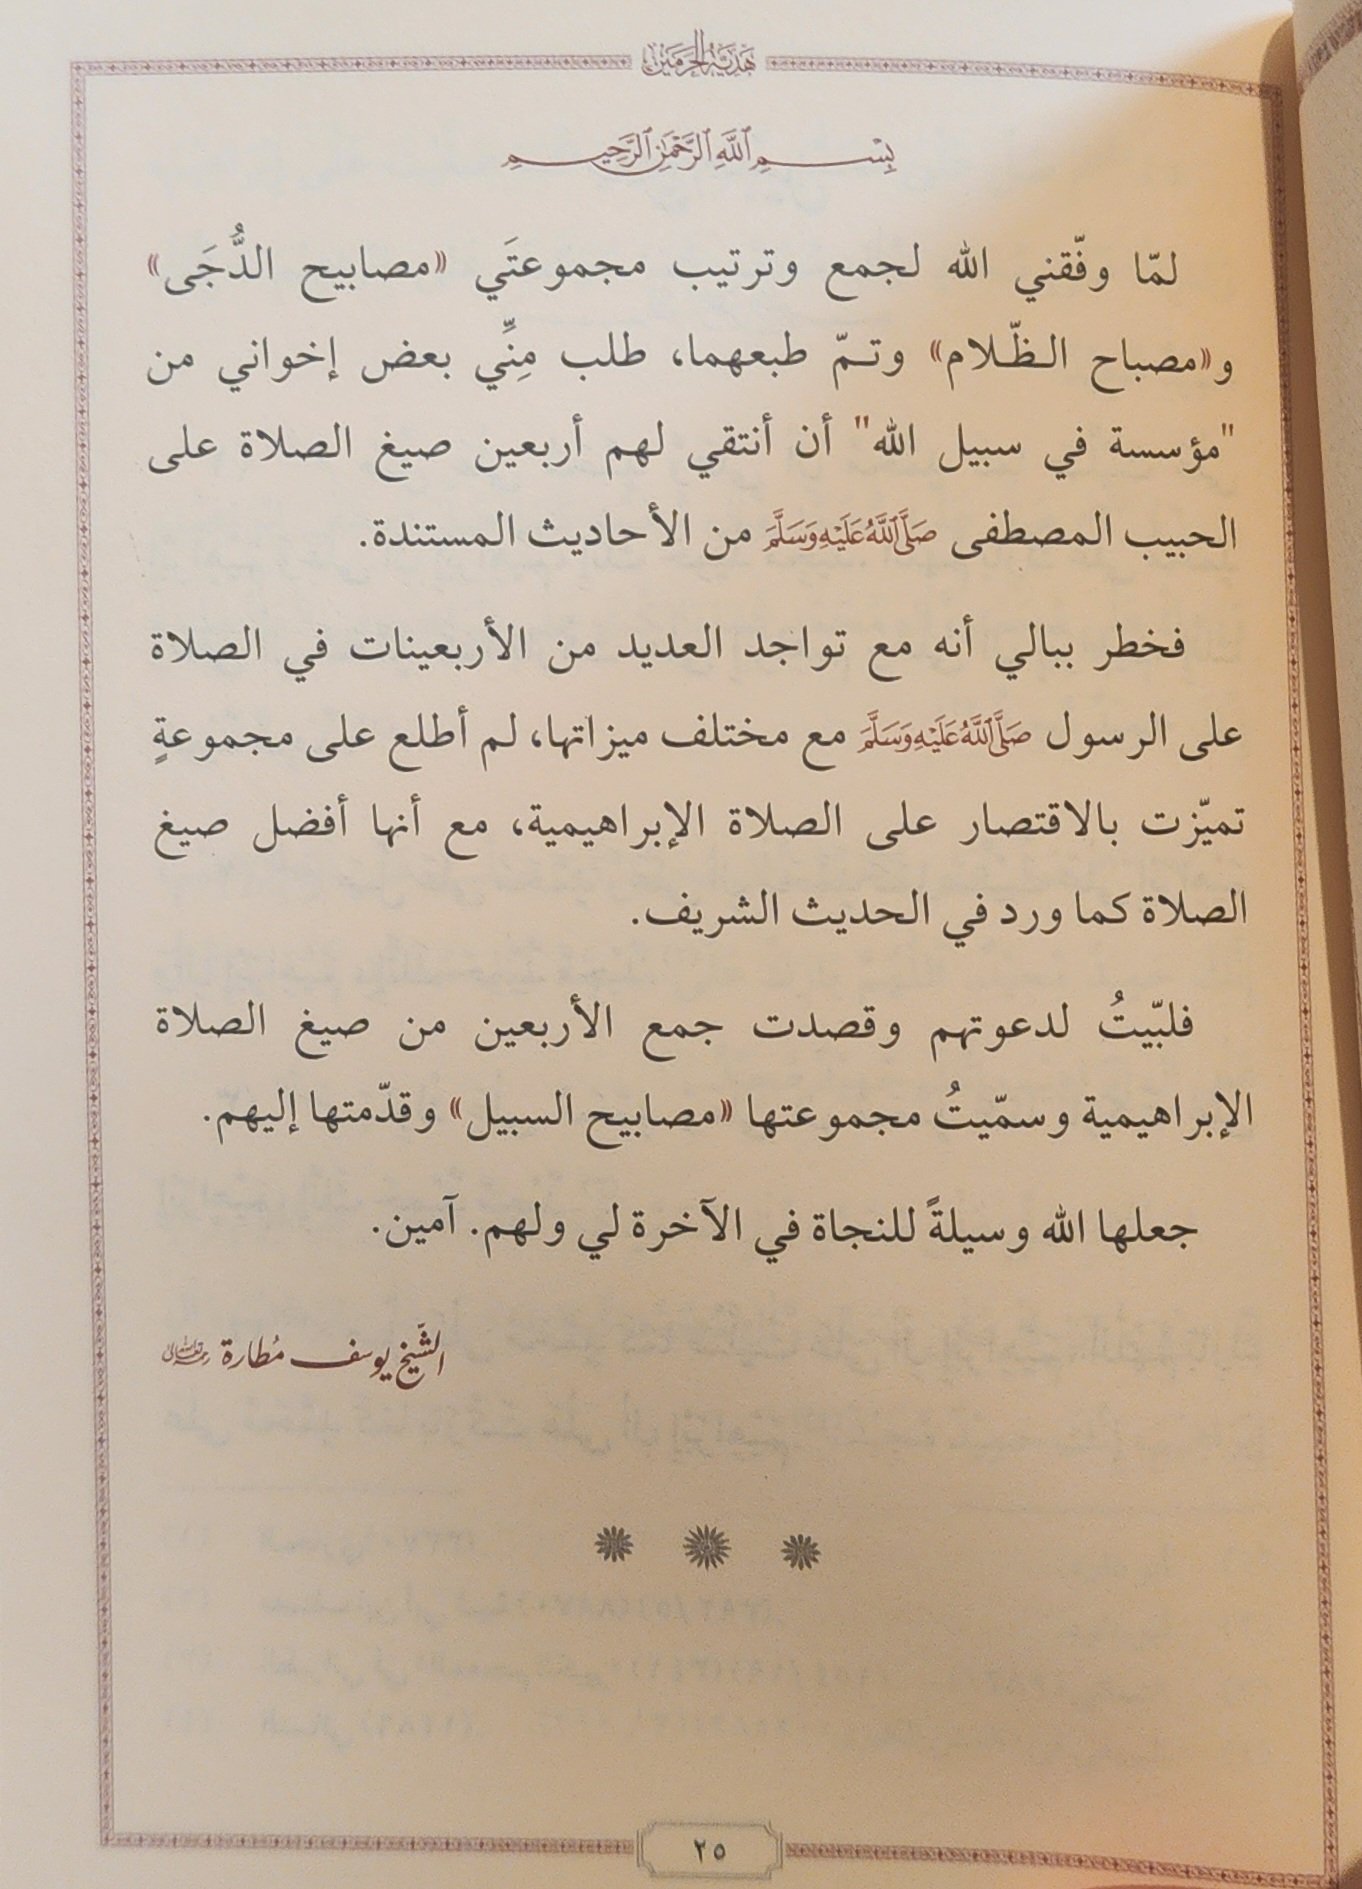 هَدِيَّةُ الحَرَمَيْن
بِسْمِ ٱللَّهِ ٱلرَّحْمَٰنِ ٱلرَّحِيمِ
لمّا وفّقني الله لجمع وترتيب مجموعتَي «مصابيح الدُّجَى»
و«مصباح الظّلام» وتمّ طبعهما، طلب مِنِّي بعض إخواني من
"مؤسسة في سبيل الله" أن أنتقي لهم أربعين صيغ الصلاة على
الحبيب المصطفى صَلَّى ٱللَّهُ عَلَيْهِ وَسَلَّمَ من الأحاديث المستندة.
فخطر ببالي أنه مع تواجد العديد من الأربعينات في الصلاة
على الرسول صَلَّى ٱللَّهُ عَلَيْهِ وَسَلَّمَ مع مختلف ميزاتها، لم أطلع على مجموعةٍ
تميّزت بالاقتصار على الصلاة الإبراهيمية، مع أنها أفضل صيغ
الصلاة كما ورد في الحديث الشريف.
فلبّيتُ لدعوتهم وقصدت جمع الأربعين من صيغ الصلاة
الإبراهيمية وسمّيتُ مجموعتها «مصابيح السبيل» وقدّمتها إليهم.
جعلها الله وسيلةً للنجاة في الآخرة لي ولهم. آمين.
الشّيخ يوسف مُطارة رحمه الله تعالى
٢٥